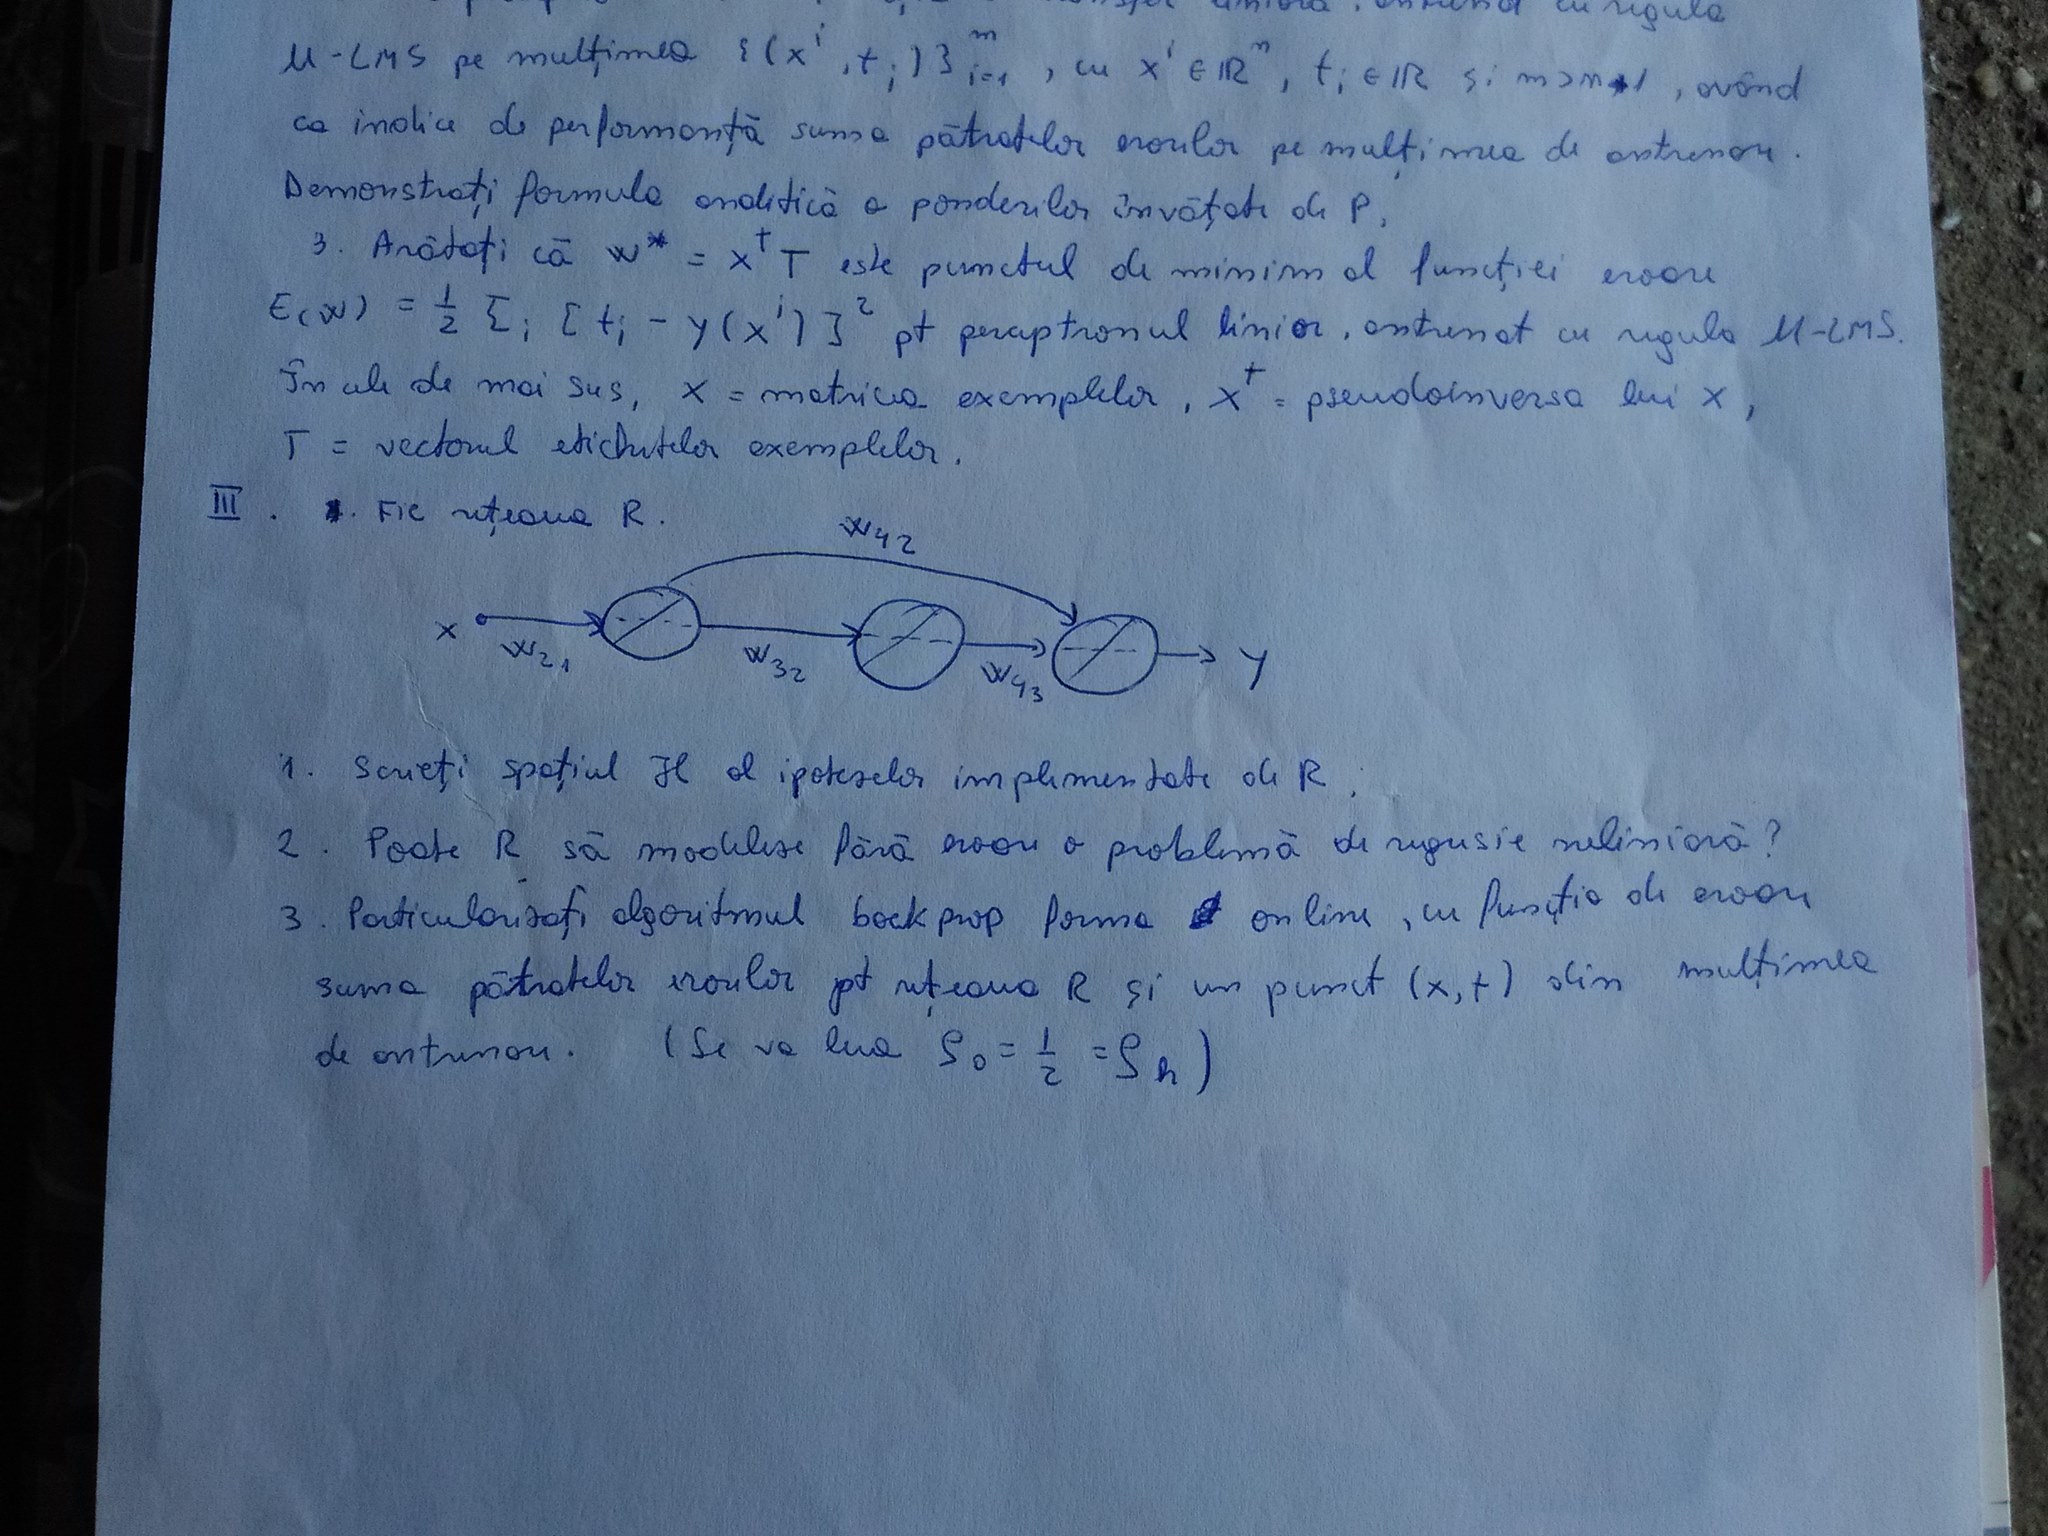 liniară, antrenat cu regula
μ-LMS pe mulțimea {(xⁱ, tᵢ)}ᵐᵢ₌₁, cu xⁱ ∈ ℝⁿ, tᵢ ∈ ℝ și m>n+1, având
ca indice de performanță suma pătratelor erorilor pe mulțimea de antrenare.
Demonstrați formula analitică a ponderilor învățate de P.
3. Arătați că w* = X⁺T este punctul de minim al funcției eroare
E(w) = 1/2 Σᵢ [tᵢ - y(xⁱ)]² pt perceptronul liniar, antrenat cu regula μ-LMS.
În cele de mai sus, X = matricea exemplelor, X⁺ = pseudoinversa lui X,
T = vectorul etichetelor exemplelor.
III. Fie rețeaua R.
w₄₂
x w₂₁ w₃₂ w₄₃ y
1. Scrieți spațiul ℋ al ipotezelor implementate de R.
2. Poate R să modeleze fără eroare o problemă de regresie neliniară?
3. Particularizați algoritmul backprop forma online, cu funcția de eroare
suma pătratelor erorilor pt rețeaua R și un punct (x,t) din mulțimea
de antrenare. (Se va lua ρ₀ = 1/2 = ρₕ)